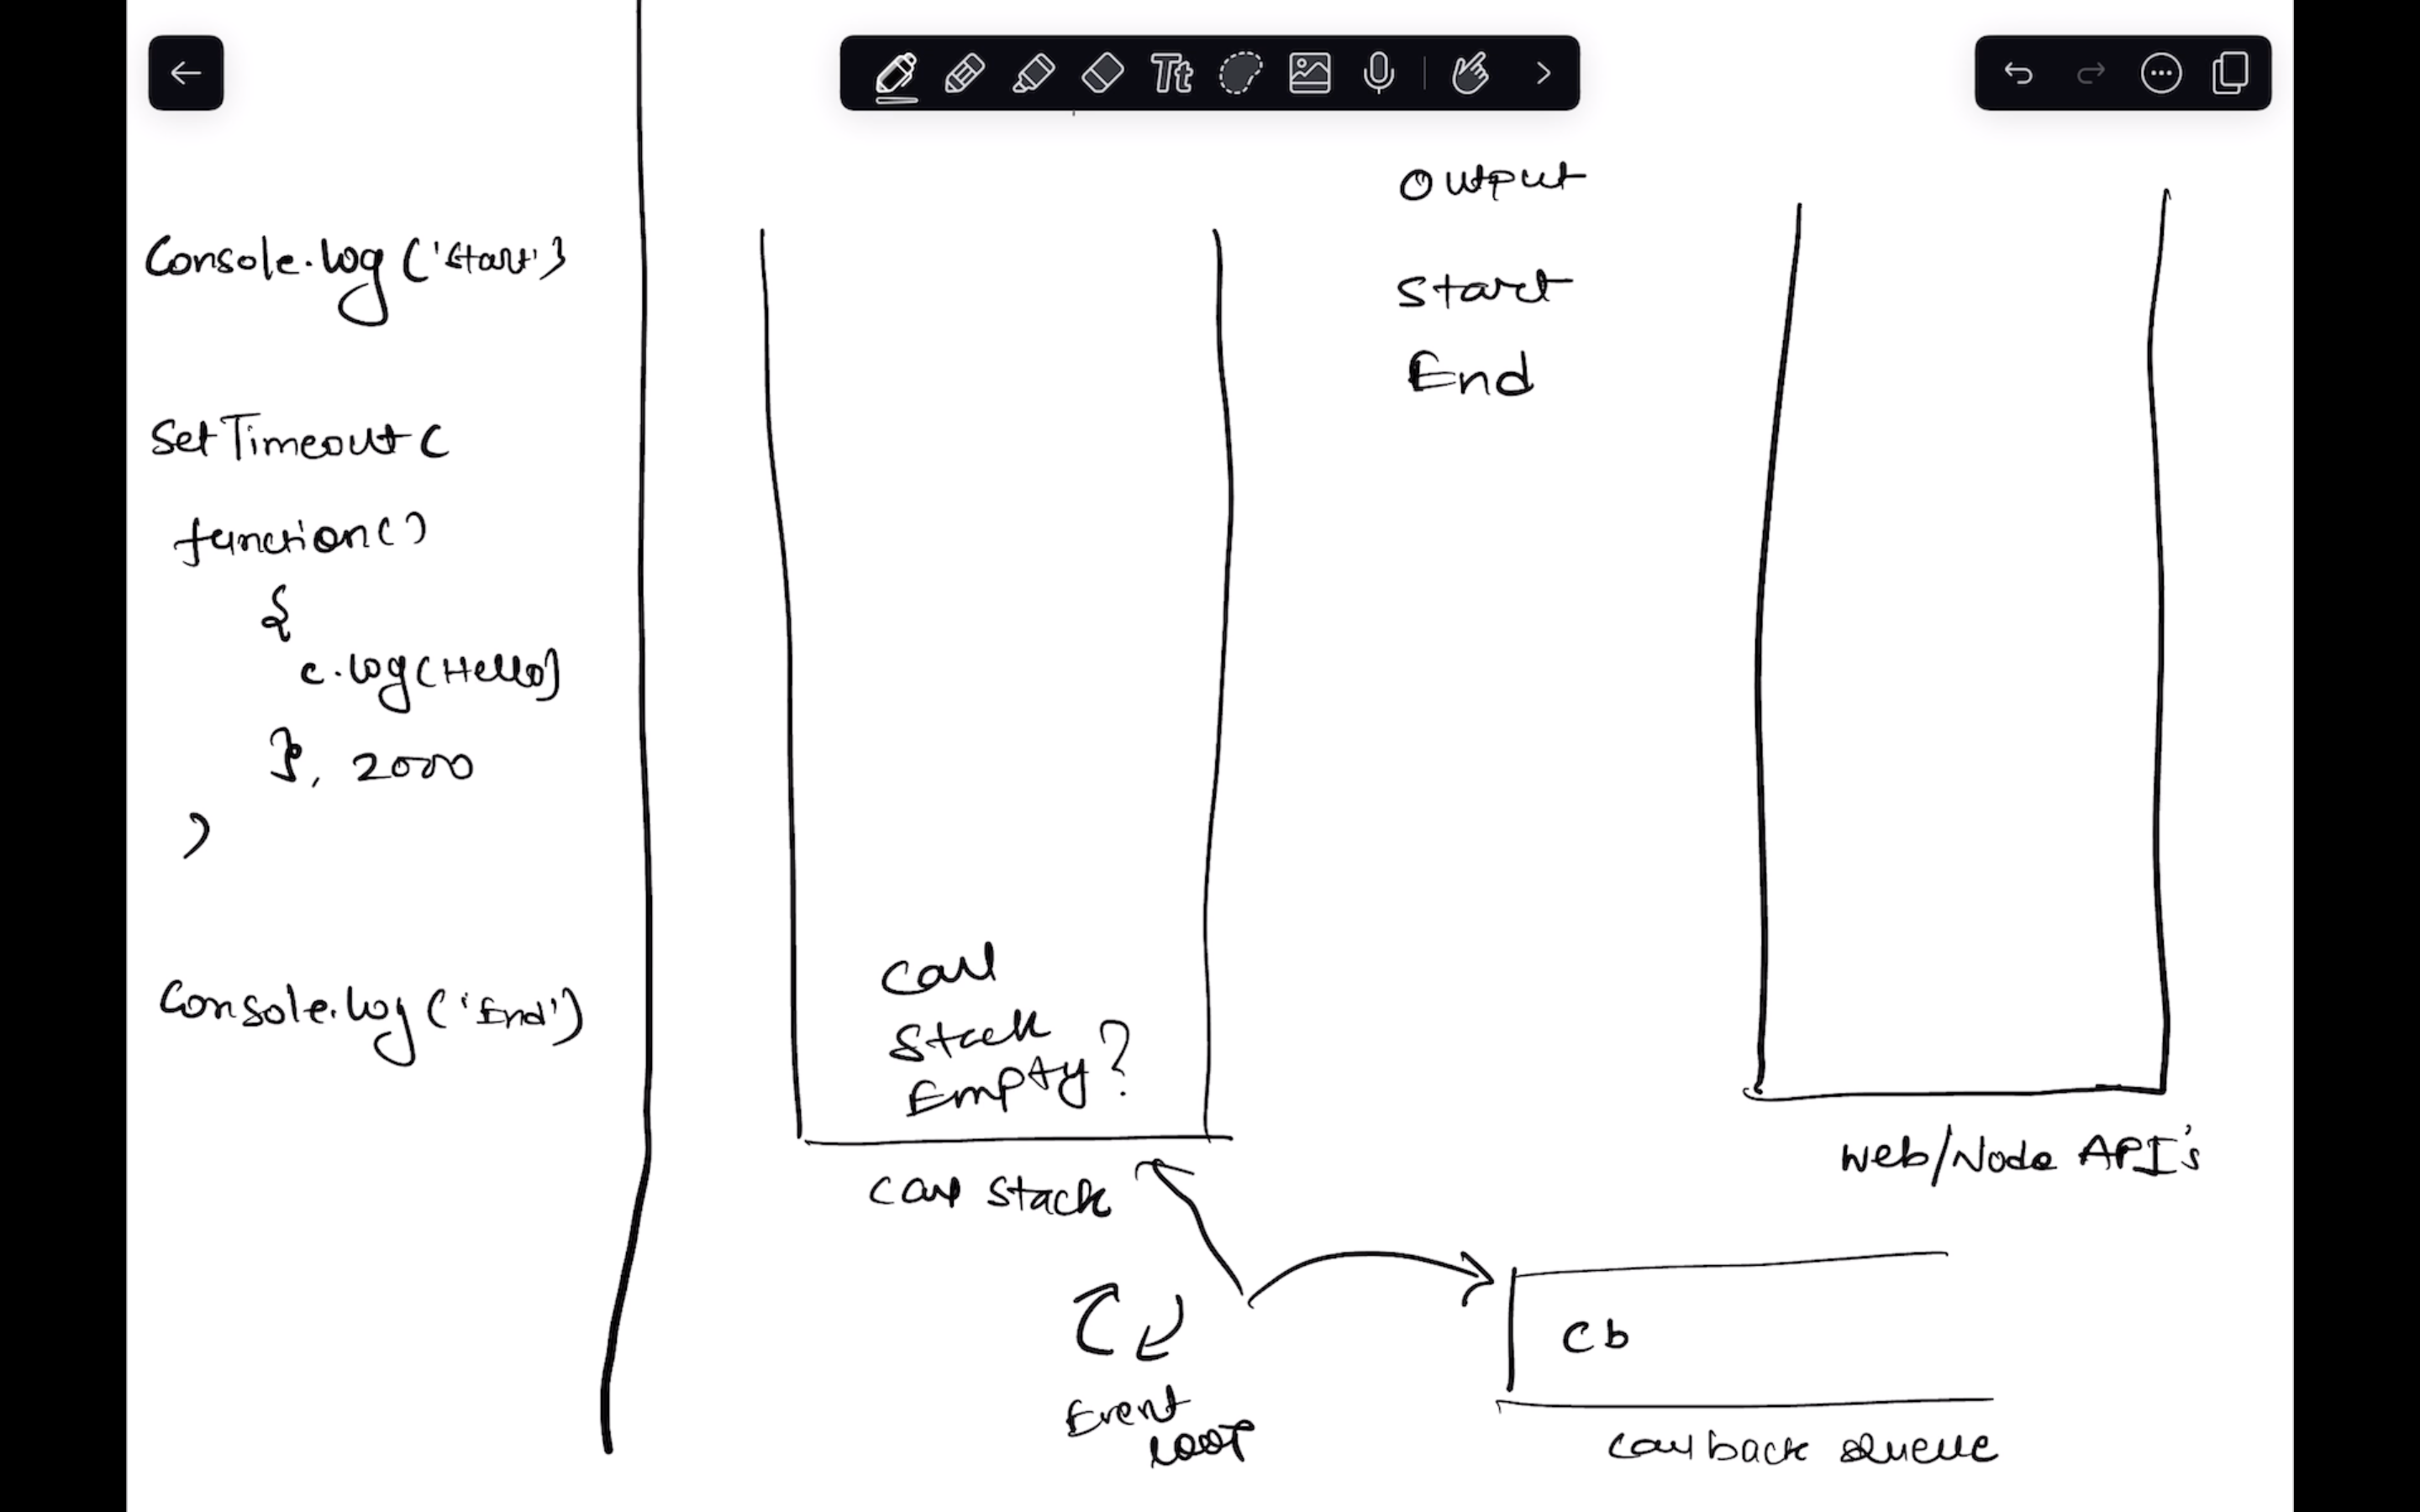 Console.log('Start')
SetTimeout(
function()
{
c.log(Hello)
}, 2000
)
Console.log('End')
Call
Stack
Empty?
Call Stack
Output
Start
End
Web/Node API's
Event
Loop
Cb
Callback Queue
Tt